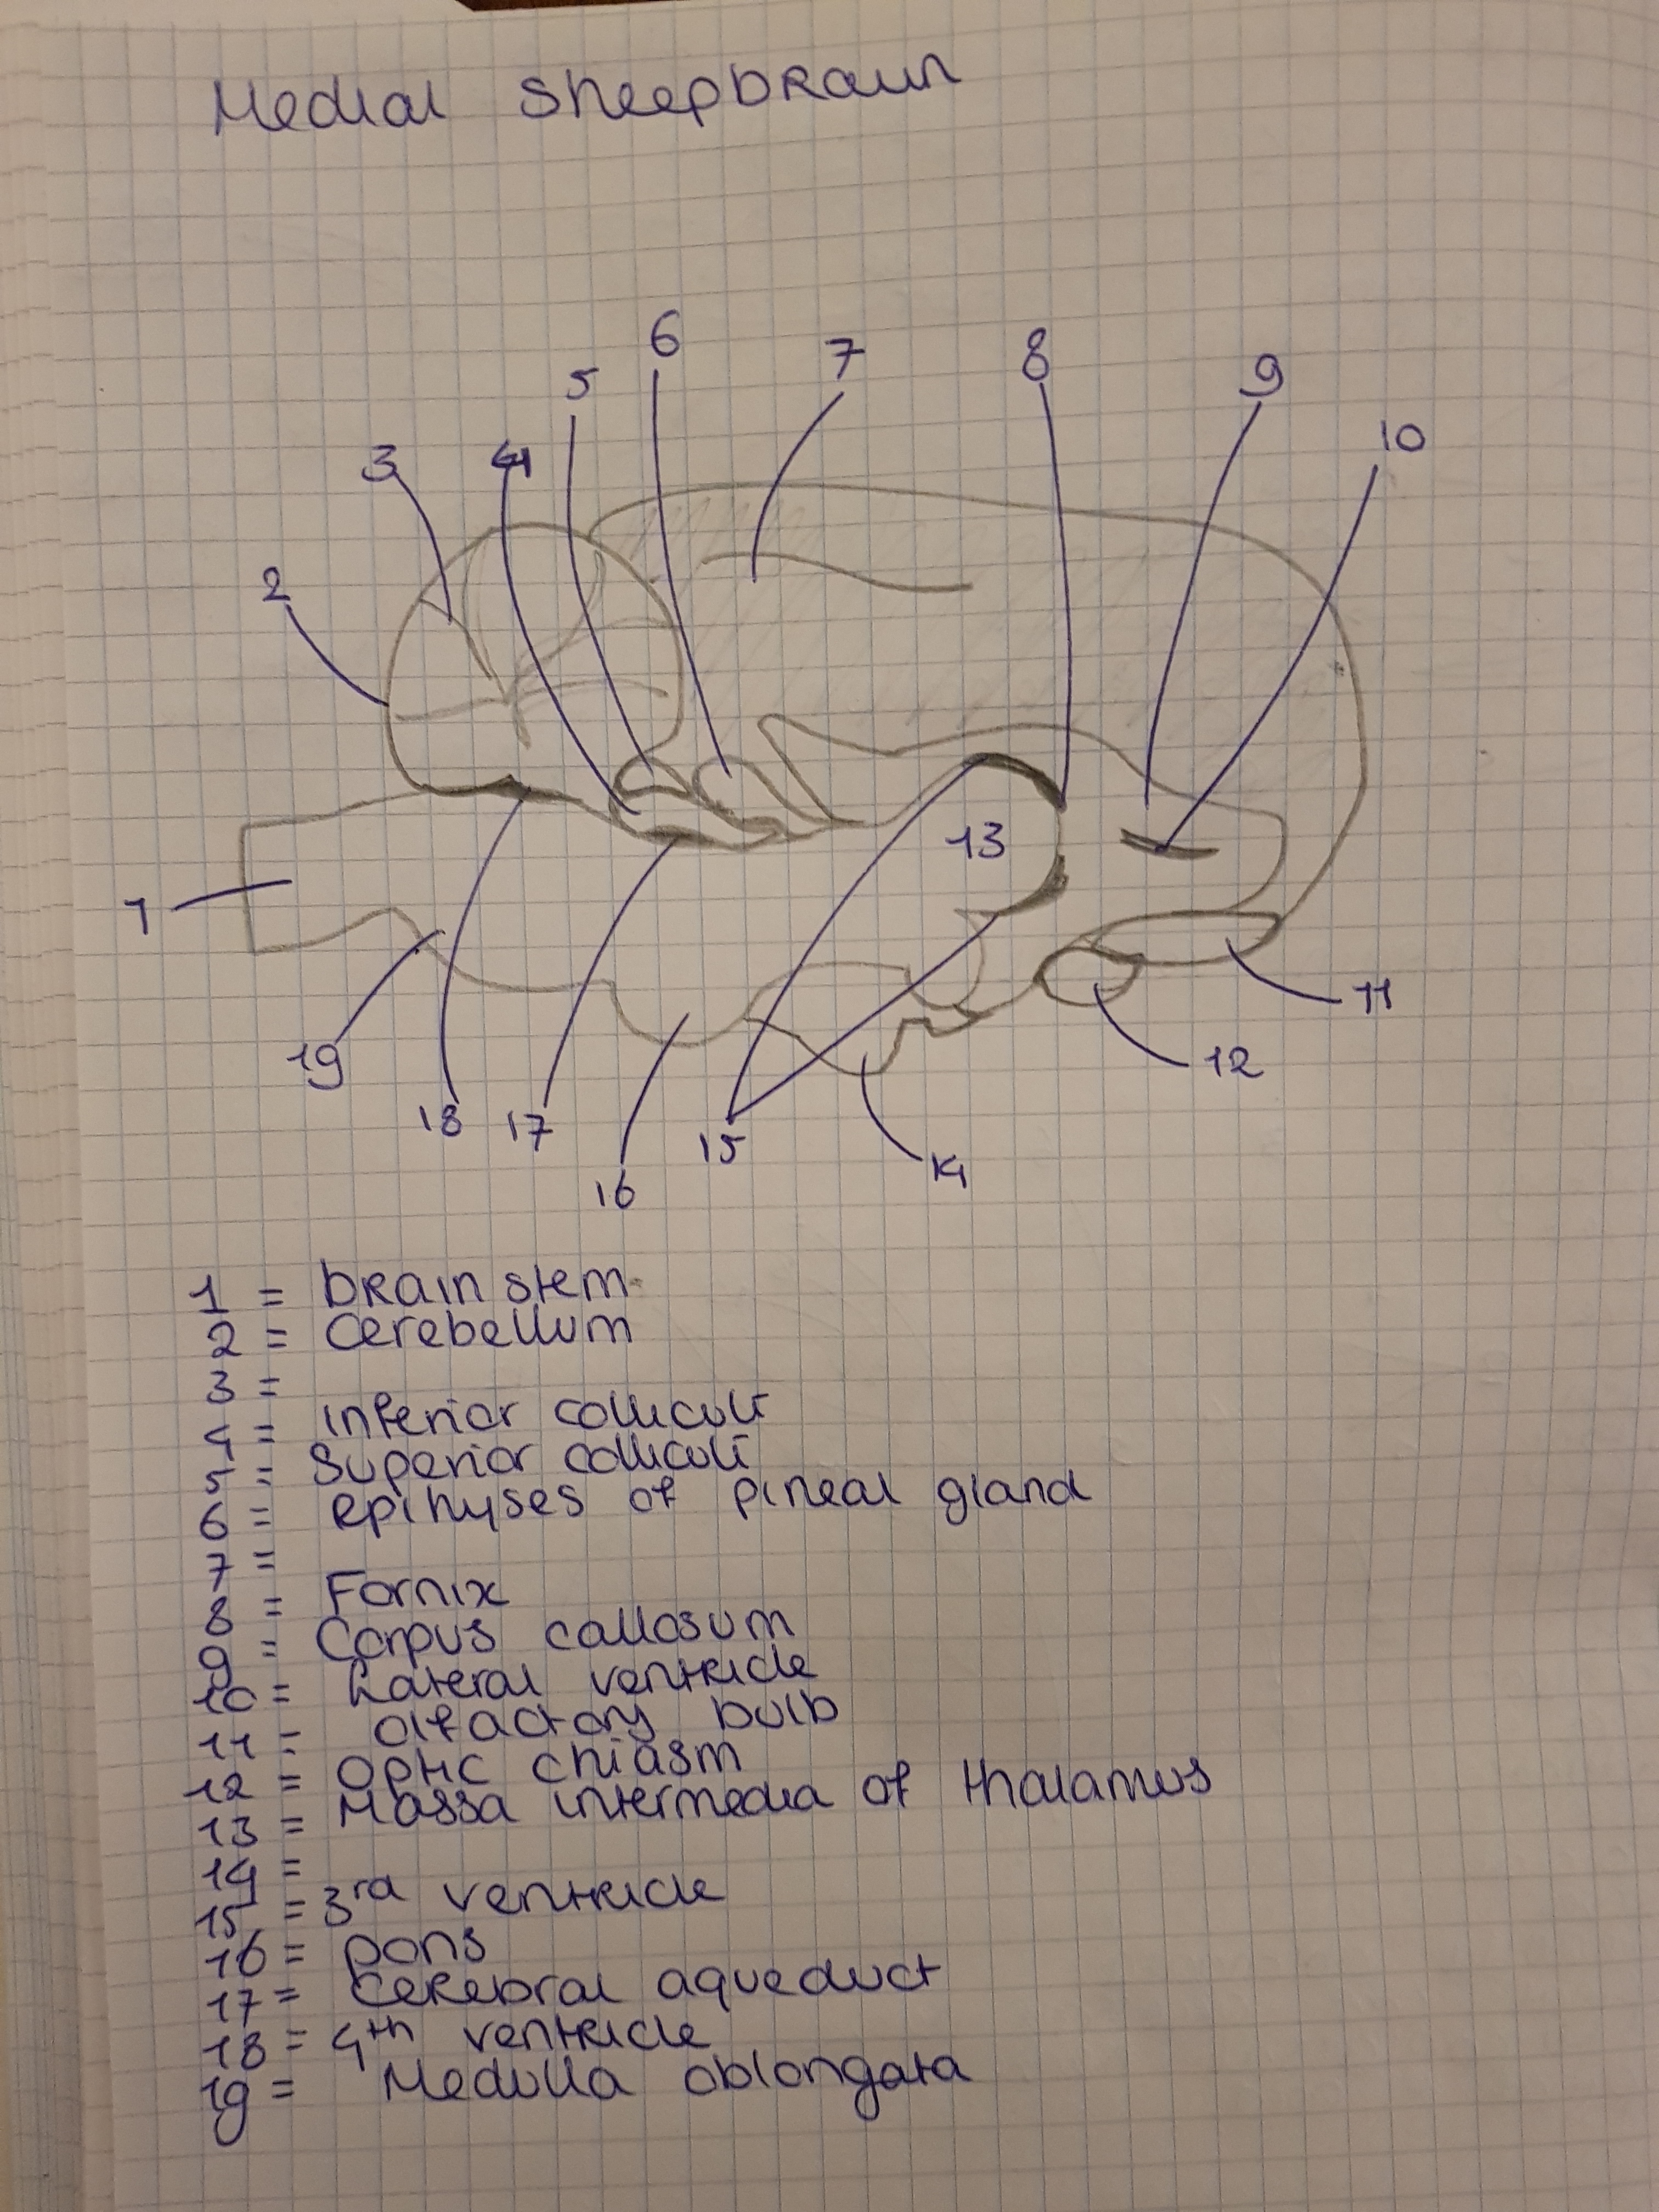 Medial sheepbrain
6
5
7
8
9
3
4
10
2
13
1
11
19
12
18
17
15
14
16
1 = brain stem
2 = cerebellum
3 =
4 = inferior colliculi
5 = Superior colliculi
6 = epihyses of pineal gland
7 =
8 = Fornix
9 = Corpus callosum
10 = Lateral ventricle
11 = olfactory bulb
12 = optic chiasm
13 = Massa intermedia of thalamus
14 =
15 = 3rd ventricle
16 = pons
17 = cerebral aqueduct
18 = 4th ventricle
19 = Medulla oblongata